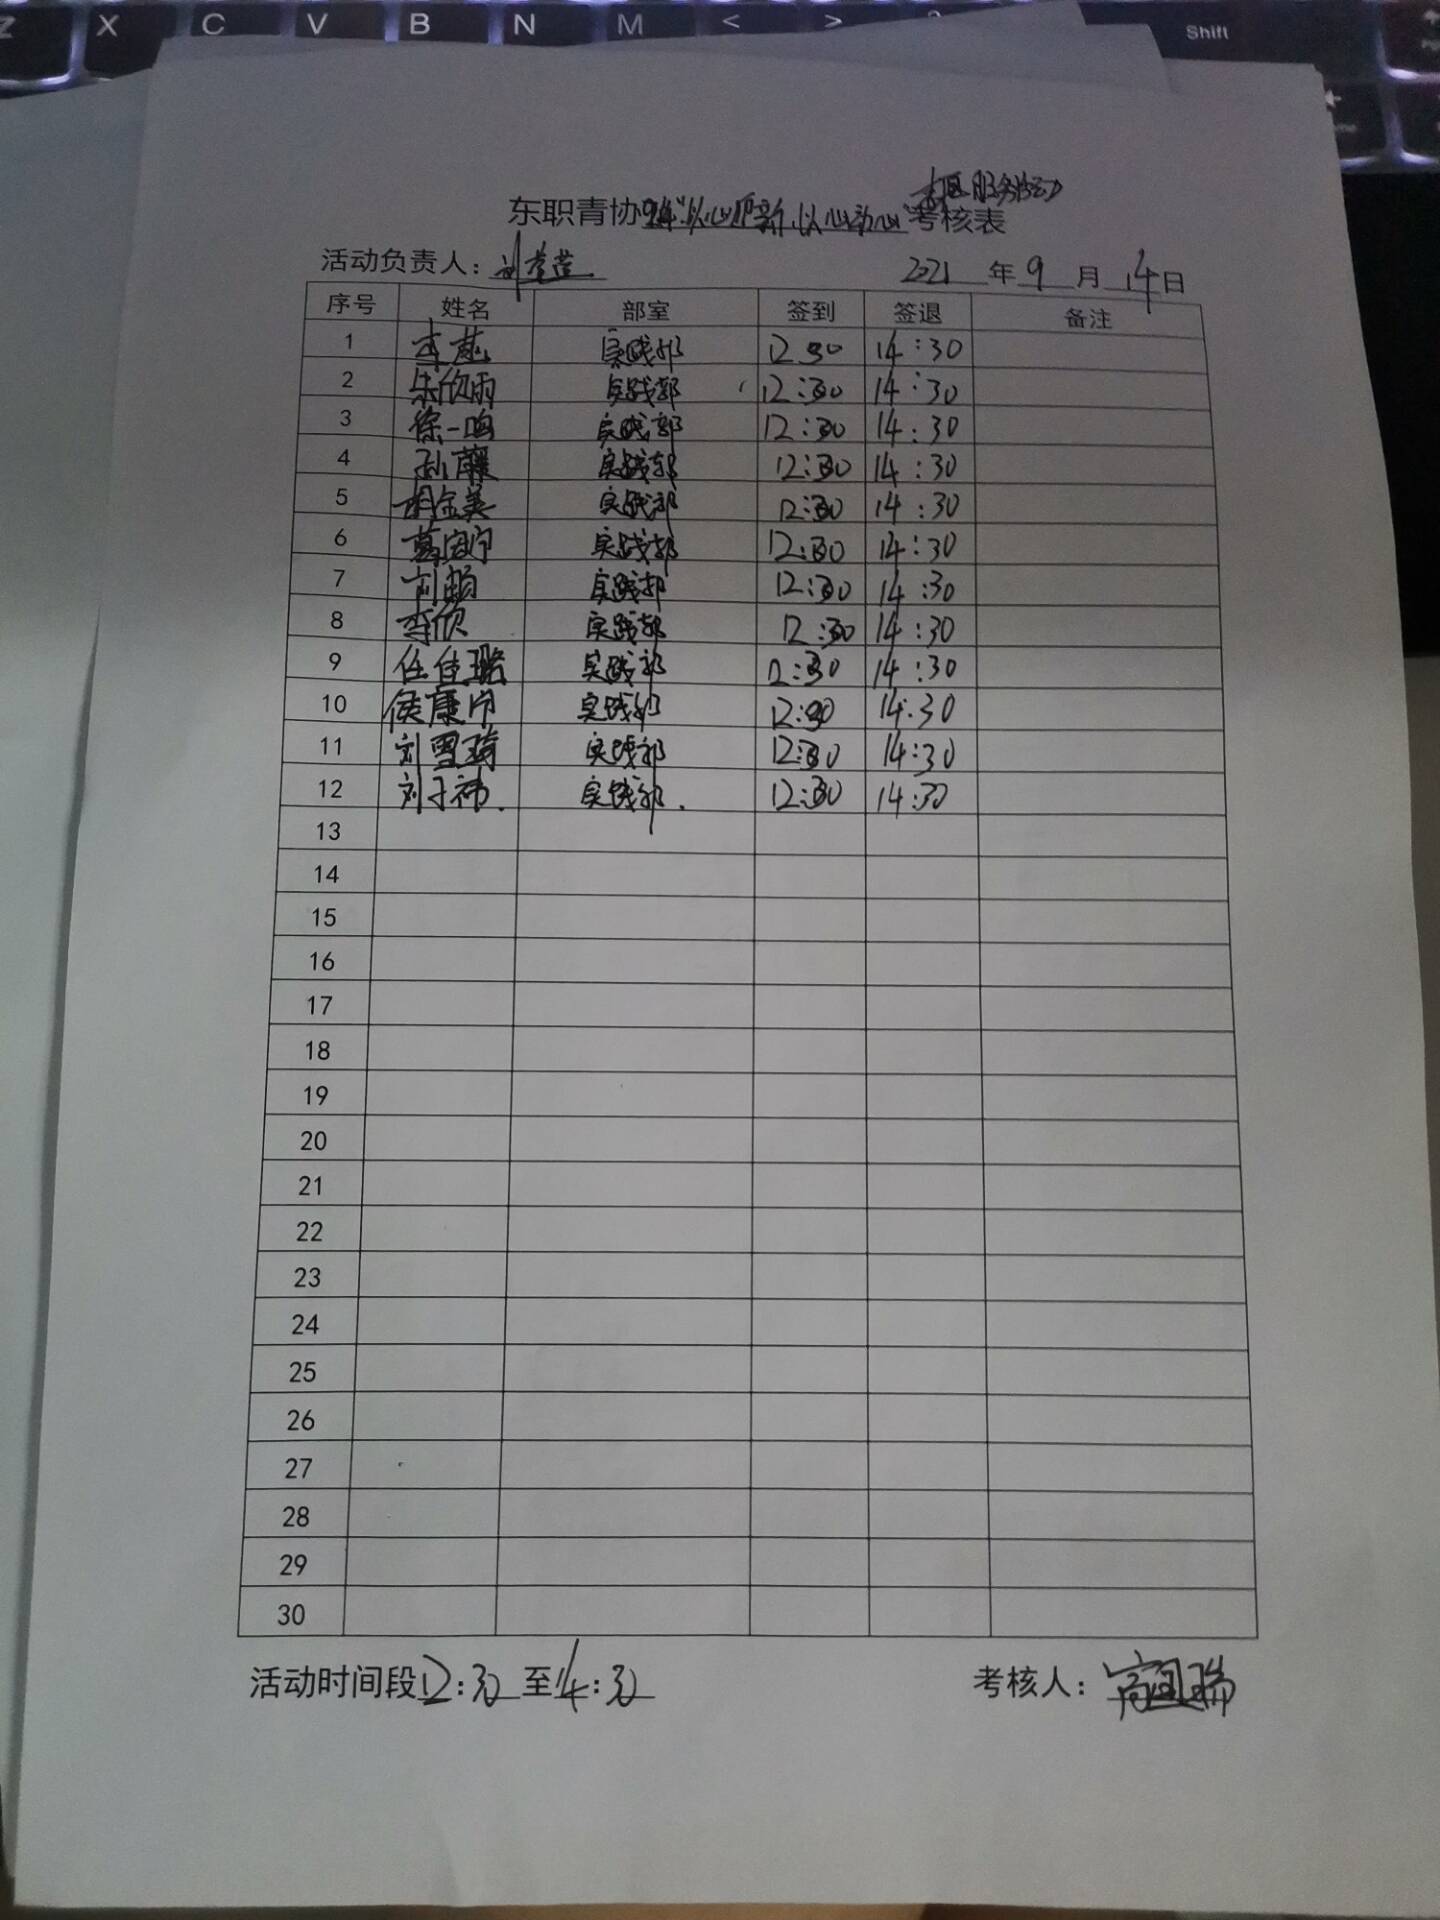 Z X C V B N M < > ? Shift
社区服务活动
东职青协"以心迎新,以心动心"考核表
活动负责人:刘
2021年9月14日
序号 姓名 部室 签到 签退 备注
1 李 实践部 12:30 14:30
2 朱欣雨 实践部 12:30 14:30
3 徐一鸣 实践部 12:30 14:30
4 孙 实践部 12:30 14:30
5 胡金美 实践部 12:30 14:30
6 葛 实践部 12:30 14:30
7 刘 实践部 12:30 14:30
8 李欣 实践部 12:30 14:30
9 任佳璐 实践部 12:30 14:30
10 侯康 实践部 12:30 14:30
11 刘雪琦 实践部 12:30 14:30
12 刘子祎. 实践部. 12:30 14:30
13
14
15
16
17
18
19
20
21
22
23
24
25
26
27
28
29
30
活动时间段12:30至14:30 考核人:瑞